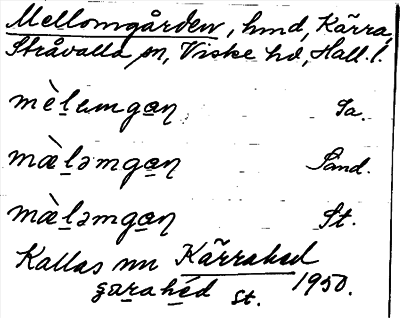 Mellomgården, hmd, Kärra,
Stråvalla sn, Viske hd, Hall. l.
mè̱lɯmga̱ŋ Sa.
mæ̀ḻəmga̱ŋ Sand.
mæ̀ḻəmga̱ŋ St.
Kallas nu Kärrahed
St. 1950.